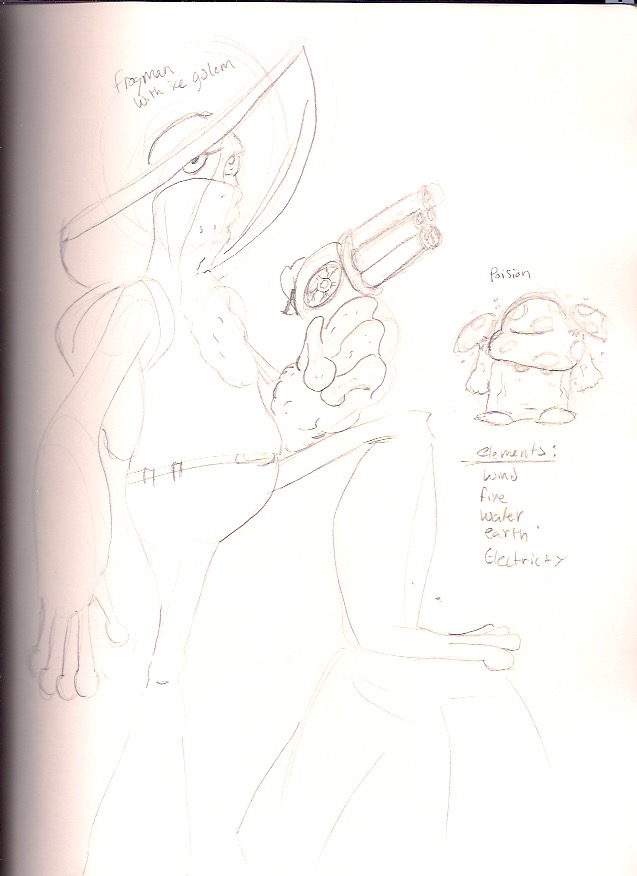 frogman
with ice golem
Poision
elements:
wind
fire
water
earth
Electricty